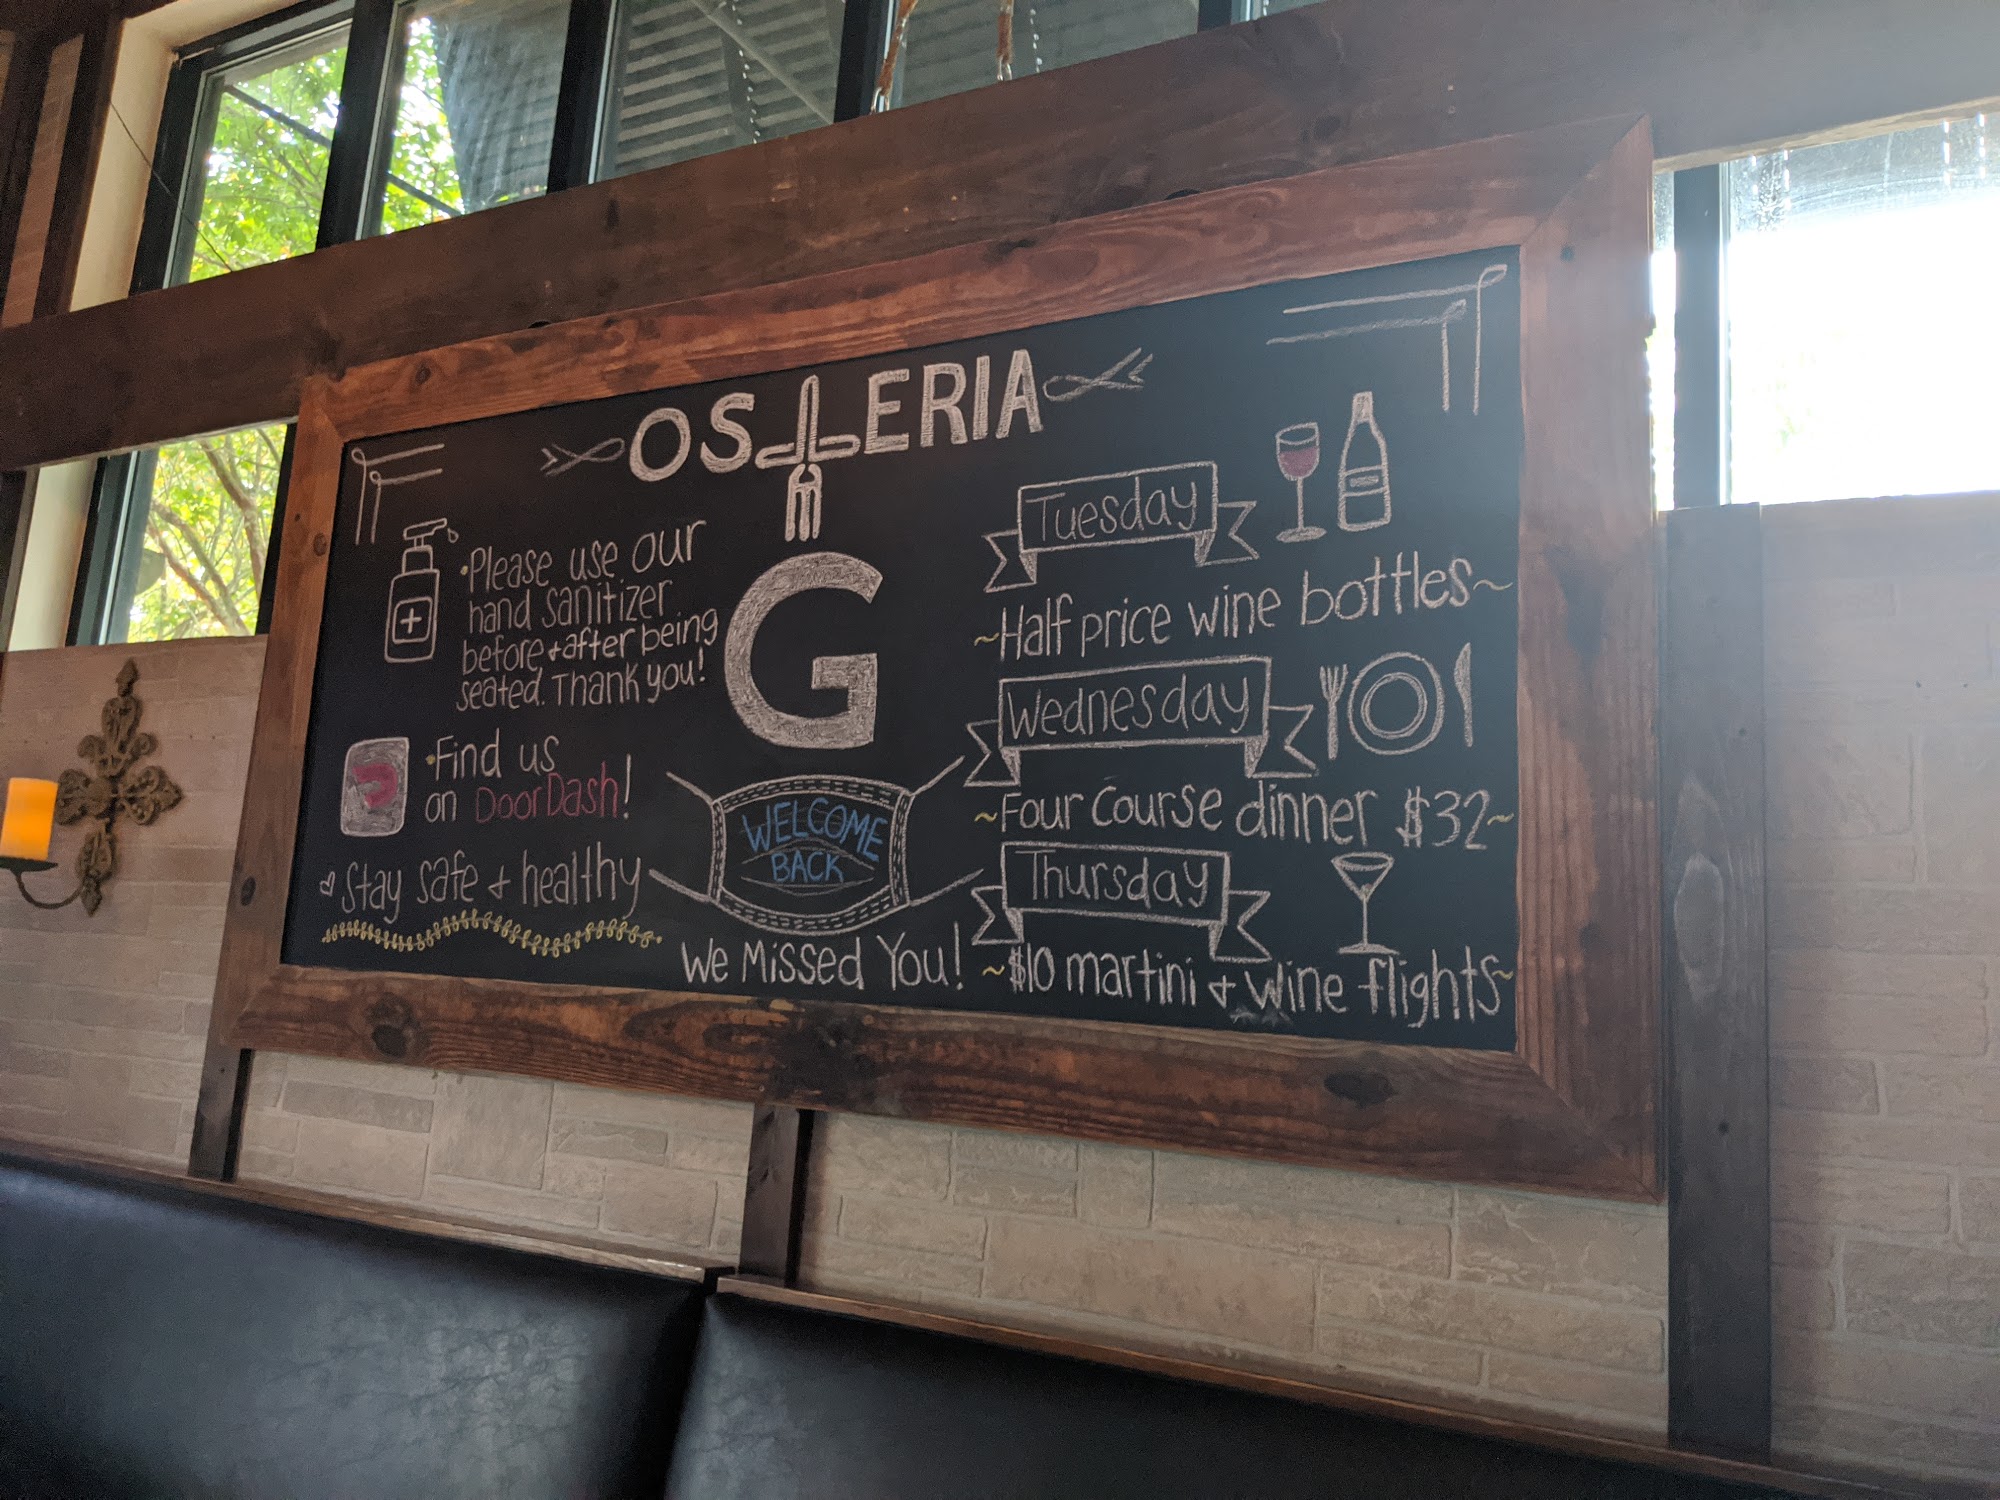 OSTERIA
G
• Please use our
hand sanitizer
before + after being
seated. Thank you!
• Find us
on DoorDash!
Stay safe + healthy
WELCOME
BACK
We Missed You!
Tuesday
~Half price wine bottles~
Wednesday
~Four course dinner $32~
Thursday
~$10 martini + wine flights~